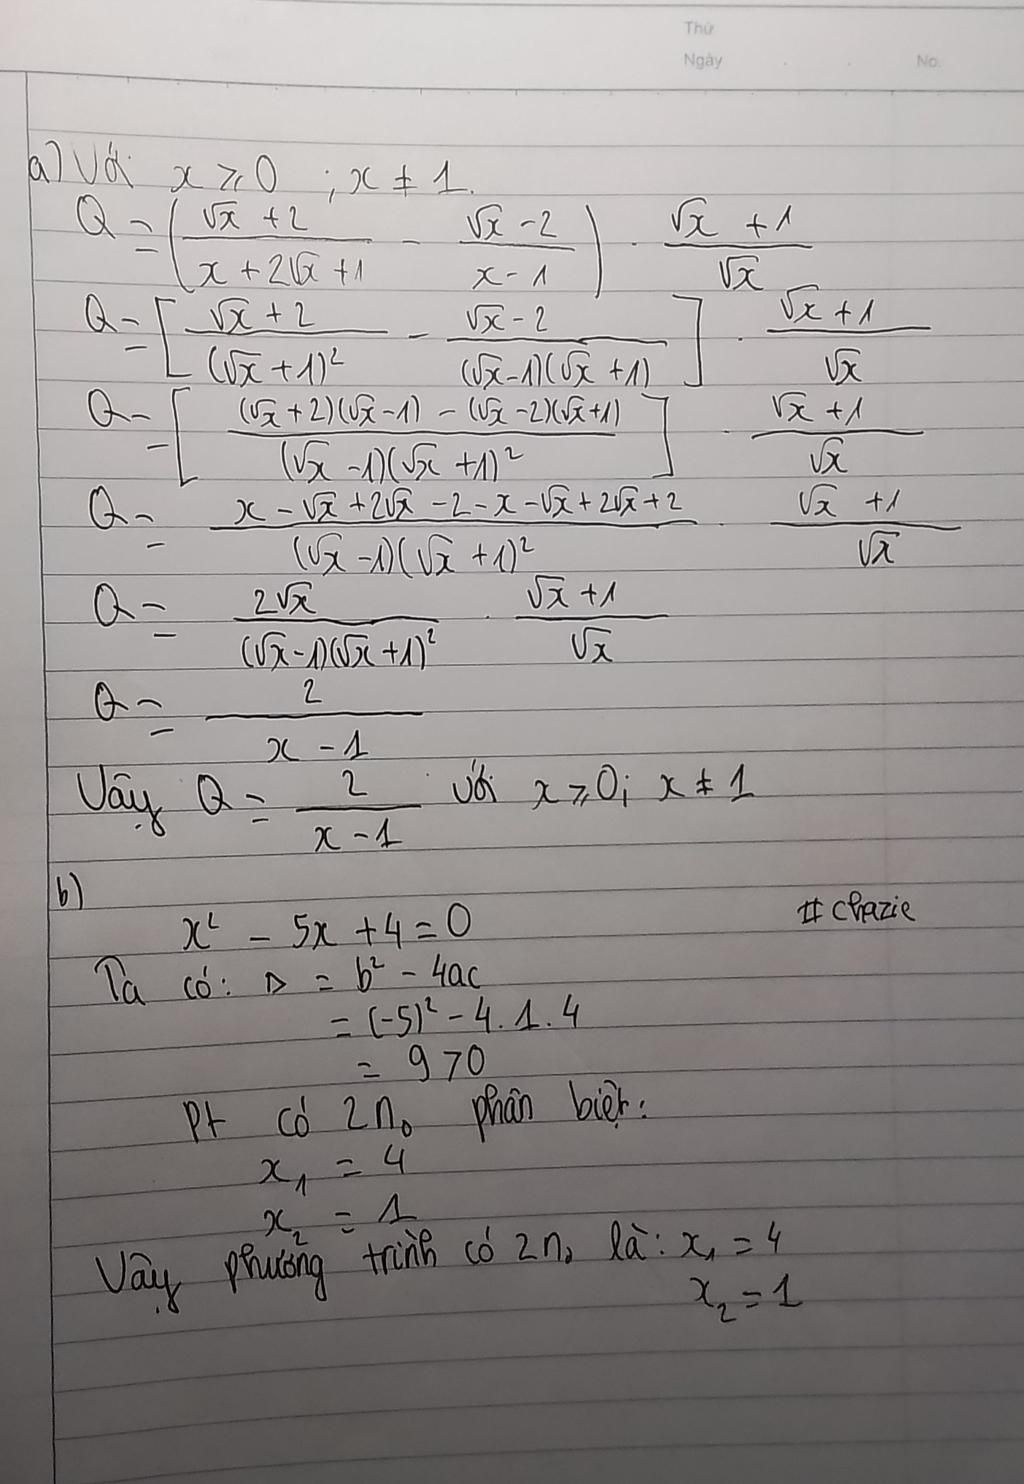 Thứ
Ngày No.
a) Với x ⩾ 0 ; x ≠ 1.
Q = ( (√x + 2)/(x + 2√x + 1) - (√x - 2)/(x - 1) ) . (√x + 1)/√x
Q = [ (√x + 2)/(√x + 1)² - (√x - 2)/((√x - 1)(√x + 1)) ] . (√x + 1)/√x
Q = [ ((√x + 2)(√x - 1) - (√x - 2)(√x + 1))/((√x - 1)(√x + 1)²) ] . (√x + 1)/√x
Q = (x - √x + 2√x - 2 - x - √x + 2√x + 2)/((√x - 1)(√x + 1)²) . (√x + 1)/√x
Q = 2√x/((√x - 1)(√x + 1)²) . (√x + 1)/√x
Q = 2/(x - 1)
Vậy Q = 2/(x - 1) với x ⩾ 0; x ≠ 1
b)
x² - 5x + 4 = 0 #chazie
Ta có: Δ = b² - 4ac
= (-5)² - 4.1.4
= 9 > 0
Pt có 2 n₀ phân biệt:
x₁ = 4
x₂ = 1
Vậy phương trình có 2 n₀ là: x₁ = 4
x₂ = 1